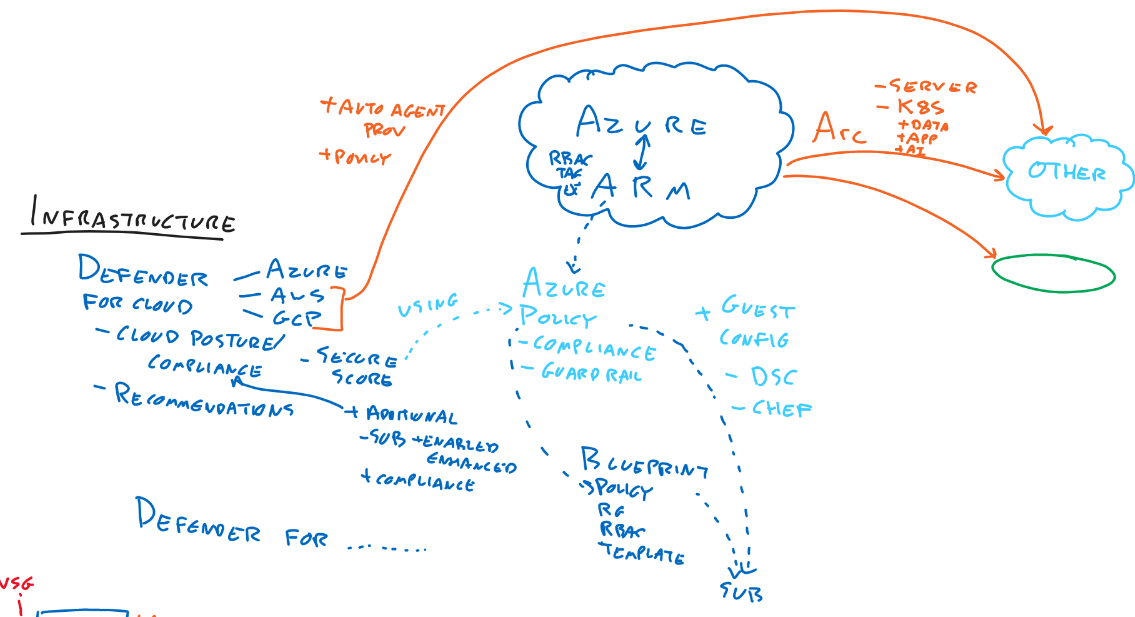 + AUTO AGENT
PROV
+ POLICY
AZURE
RBAC
TAG
ARM
Arc
- SERVER
- K8S
+ DATA
+ APP
+ AI
OTHER
INFRASTRUCTURE
DEFENDER
FOR CLOUD
- AZURE
- AWS
- GCP
- CLOUD POSTURE/
COMPLIANCE
- SECURE
SCORE
- RECOMMENDATIONS
+ ADDITIONAL
- SUB + ENABLED
ENHANCED
+ COMPLIANCE
USING
AZURE
POLICY
- COMPLIANCE
- GUARD RAIL
+ GUEST
CONFIG
- DSC
- CHEF
BLUEPRINT
POLICY
RG
RBAC
TEMPLATE
SUB
DEFENDER FOR ........
NSG